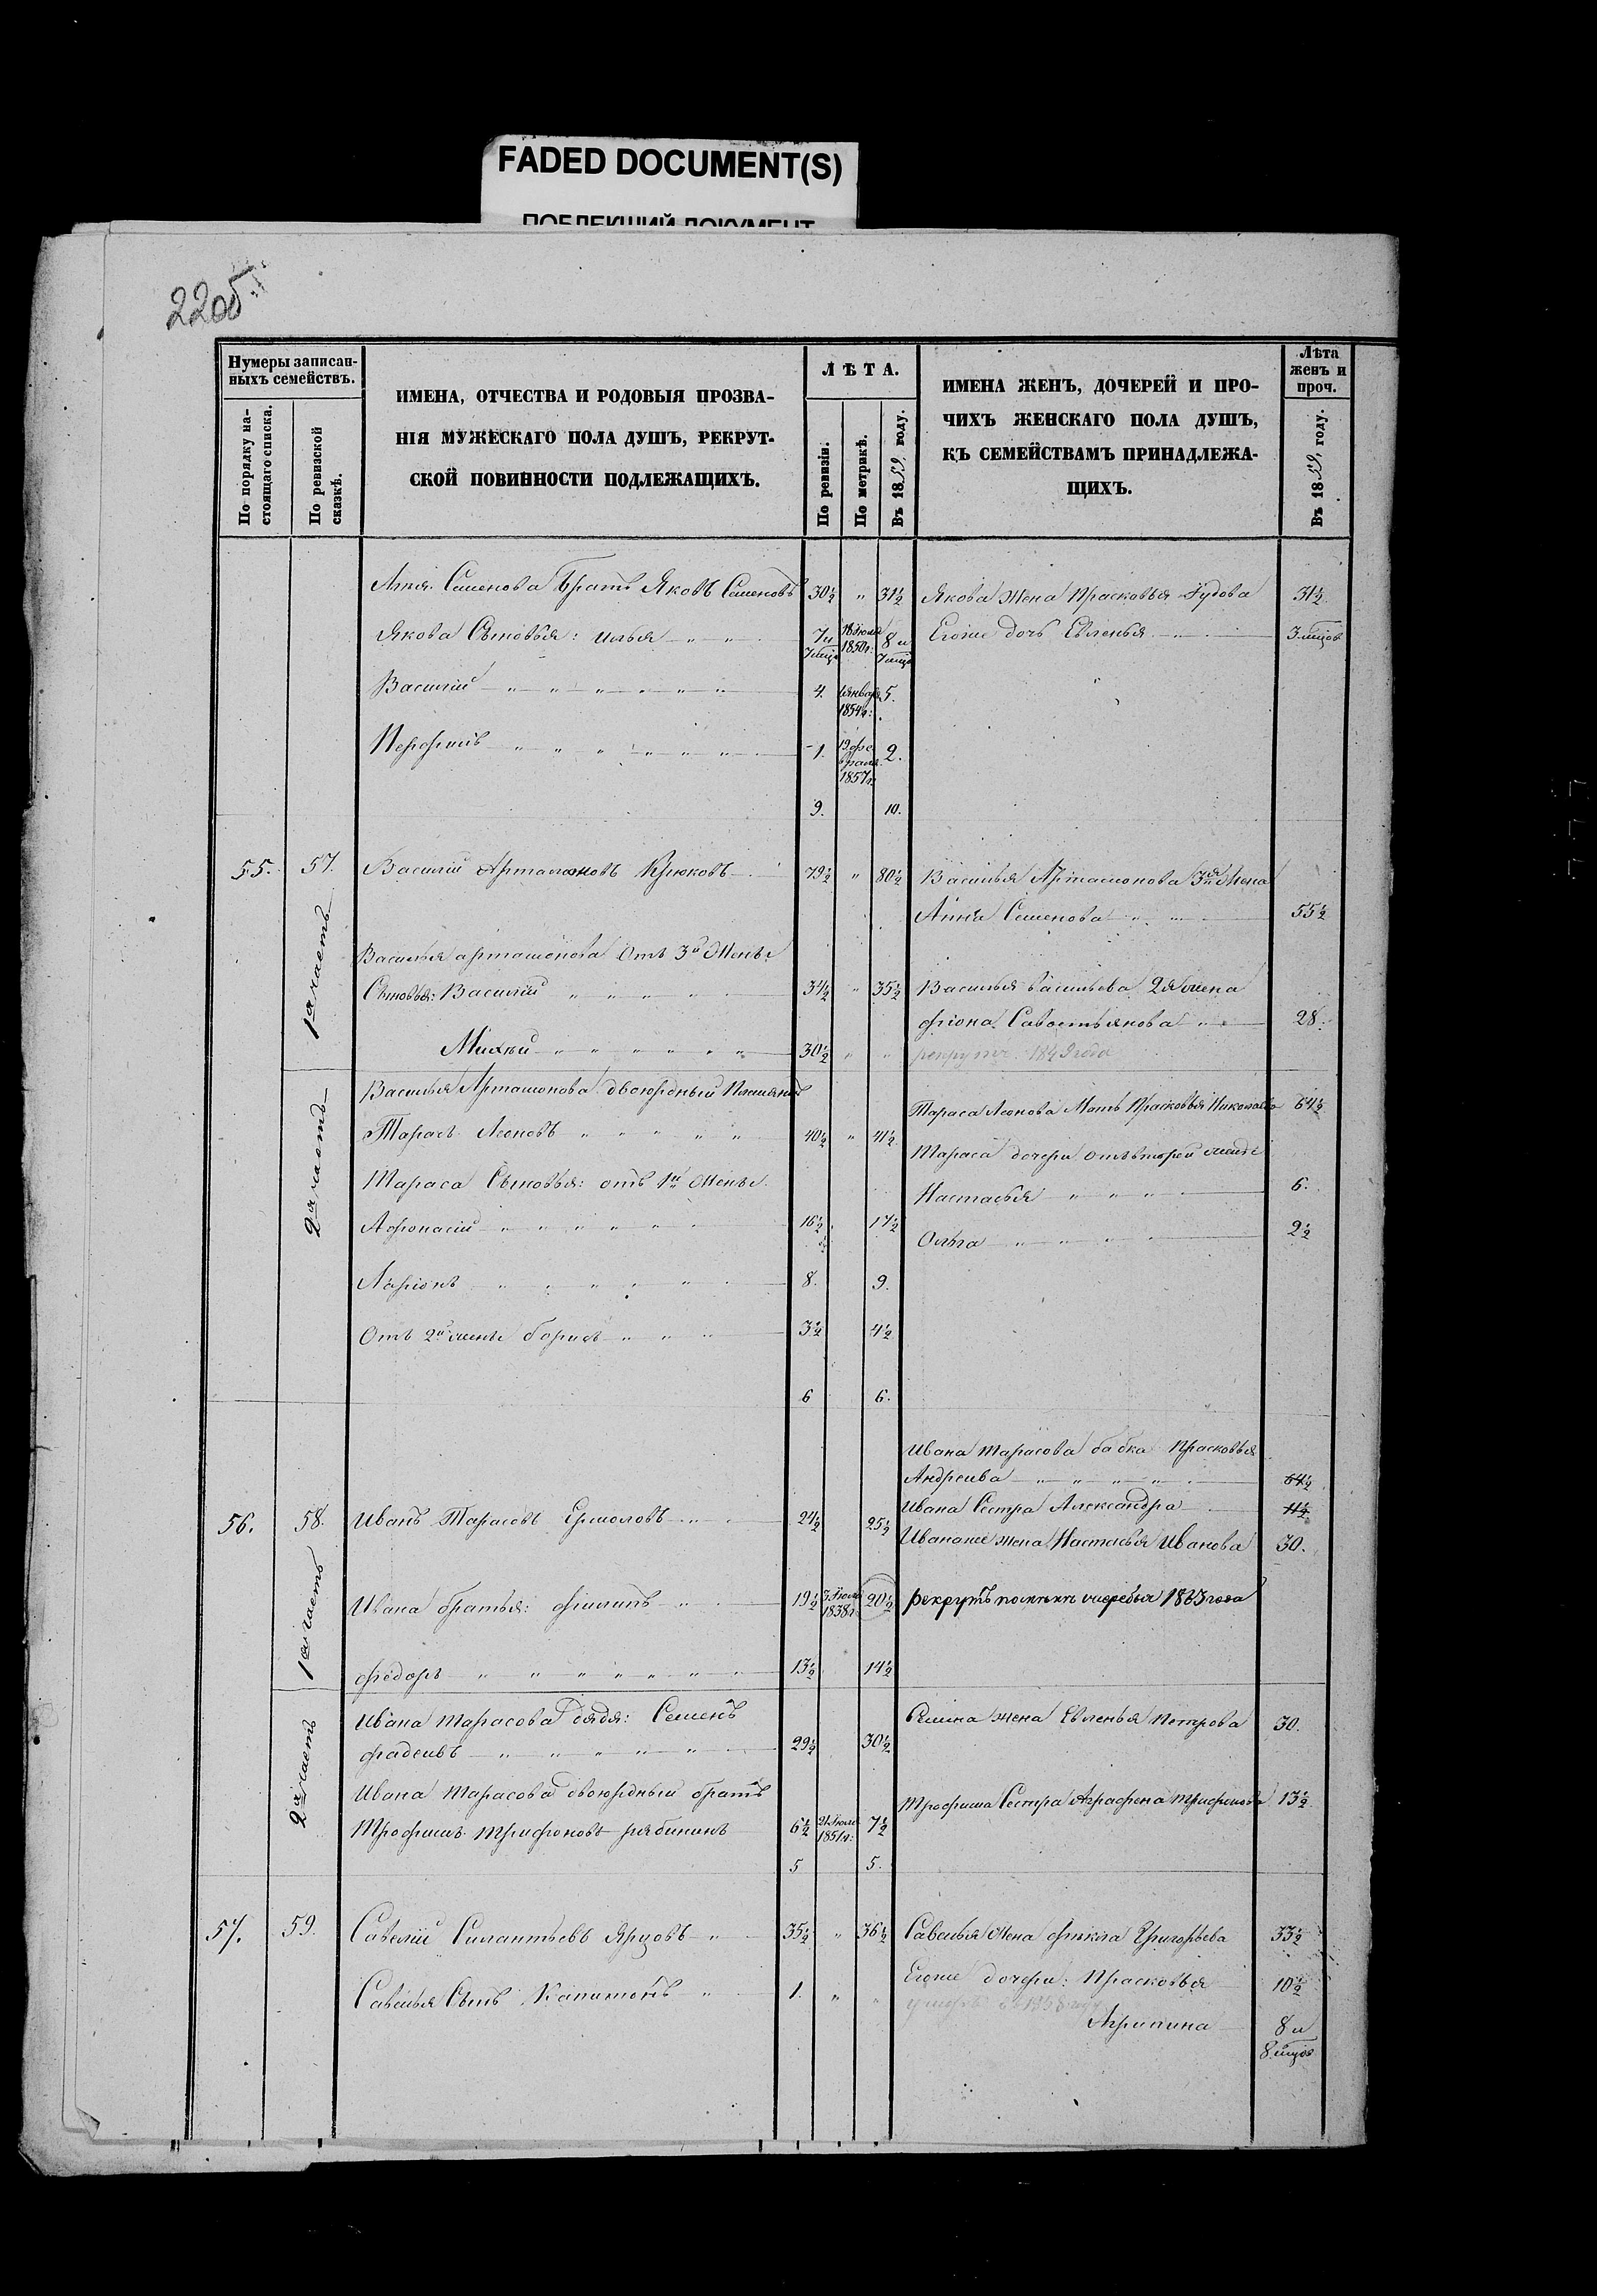 FADED DOCUMENT(S)
ПОБЛЕКШИЙ ДОКУМЕНТ
22об.
Нумеры записан-
ныхъ семействъ.
По порядку на-
стоящаго списка.
По ревизской
сказкѣ.
ИМЕНА, ОТЧЕСТВА И РОДОВЫЯ ПРОЗВА-
НІЯ МУЖЕСКАГО ПОЛА ДУШЪ, РЕКРУТ-
СКОЙ ПОВИННОСТИ ПОДЛЕЖАЩИХЪ.
ЛѢТА.
По ревизіи.
По метрикѣ.
Въ 1859 году.
ИМЕНА ЖЕНЪ, ДОЧЕРЕЙ И ПРО-
ЧИХЪ ЖЕНСКАГО ПОЛА ДУШЪ,
КЪ СЕМЕЙСТВАМЪ ПРИНАДЛЕЖА-
ЩИХЪ.
Лѣта
женъ и
проч.
Въ 1859 году.
Семенова Братъ Яковъ Семеновъ 30½ " 31½ Якова жена Прасковья 31½
Якова Сыновья: Илья 7 и 7 мцо 18 Іюля 1850 г: 8 и 7 мцо Егоже дочь Евленья 3 мцов
Василій 4. Январ 1854 г: 5.
1. 19 фе враля 1857 г 2.
9. 10.
55. 57. Василій Артамоновъ Крюковъ 79½ " 80½ Василья Артамонова 3я жена
Анна Семенова 55½
1я часть
Василья Артамонова Отъ 3й Жены
Сыновья: Василій 34½ " 35½ Василья Васильева 2я жена
Савостьянова 28.
Михѣй 30½ " " рекрутъ 1849 года
2я часть
Василья Артамонова двоюродный Племянникъ
Тарасъ Леоновъ 40½ " 41½ Тараса Леонова Мать Прасковья Николаева 64½
Тараса дочери отъ второй жены
Тараса Сыновья: отъ 1й Жены
Настасья 6.
Афонасій 16½ 17½
Ольга 2½
Ларіонъ 8. 9.
Отъ 2й жены Борисъ 3½ 4½
6 6.
Ивана Тарасова бабка Прасковья
Андреева 64½
Ивана Сестра Александра 11½
56. 58. Иванъ Тарасовъ Ермоловъ 24½ 25½
Иванаже жена Настасья Иванова 30.
1я часть
Ивана братья: Филипъ 19½ 3 Іюля 1838 г: 20½ рекрутъ 1863 года
Федоръ 13½ 14½
2я часть
Ивана Тарасова дядя: Семенъ
Фадеивъ 29½ 30½ Семина жена Евленья Петрова 30.
Ивана Тарасова двоюродный братъ
Трофимъ Трифоновъ Рябининъ 6½ 21 Іюля 1851 г: 7½ Трофима Сестра Аграфена Трифонова 13½
5 5.
57. 59. Савелій Силантьевъ Ярцовъ 35½ " 36½ Савелья Жена Фекла Григорьева 33½
Егоже дочери: Прасковья 10½
Савелья Сынъ Капитонъ 1. " " умеръ въ 1858 году
Агрипина 8 и
8 мцов